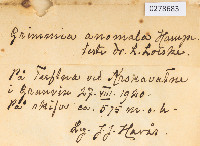 0278683
Grimmia anomala Hamp.
teste dr. L. Loeske.
På Terfina ved Nesheimvatne
i Granvin 27. VIII. 1940.
På skifer ca. 575 m. o. h.
Leg. J. J. Havås.